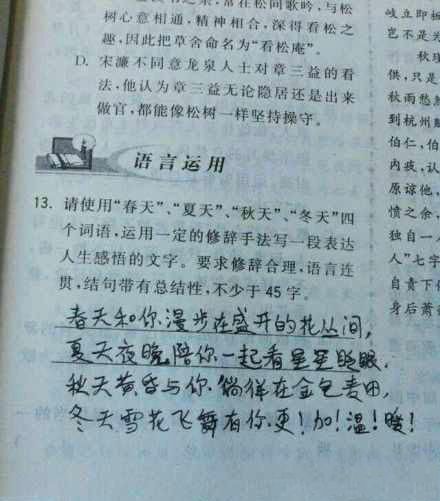 常在松间歌吟,与松
树心意相通,精神相合,深得看松之
趣,因此把草舍命名为“看松庵”。
D. 宋濂不同意龙泉人士对章三益的看
法,他认为章三益无论隐居还是出来
做官,都能像松树一样坚持操守。
语言运用
13. 请使用“春天”、“夏天”、“秋天”、“冬天”四
个词语,运用一定的修辞手法写一段表达
人生感悟的文字。要求修辞合理,语言连
贯,结句带有总结性,不少于 45 字。
春天和你漫步在盛开的花丛间,
夏天夜晚陪你一起看星星眨眼,
秋天黄昏与你徜徉在金色麦田,
冬天雪花飞舞有你更!加!温!暖!
岐立即
岂不是
供,只是
秋雨愁
到杭州
伯仁,伯
内疚,认
原谅他,
愤之余
独自一
人”七字
自责下
身后萧